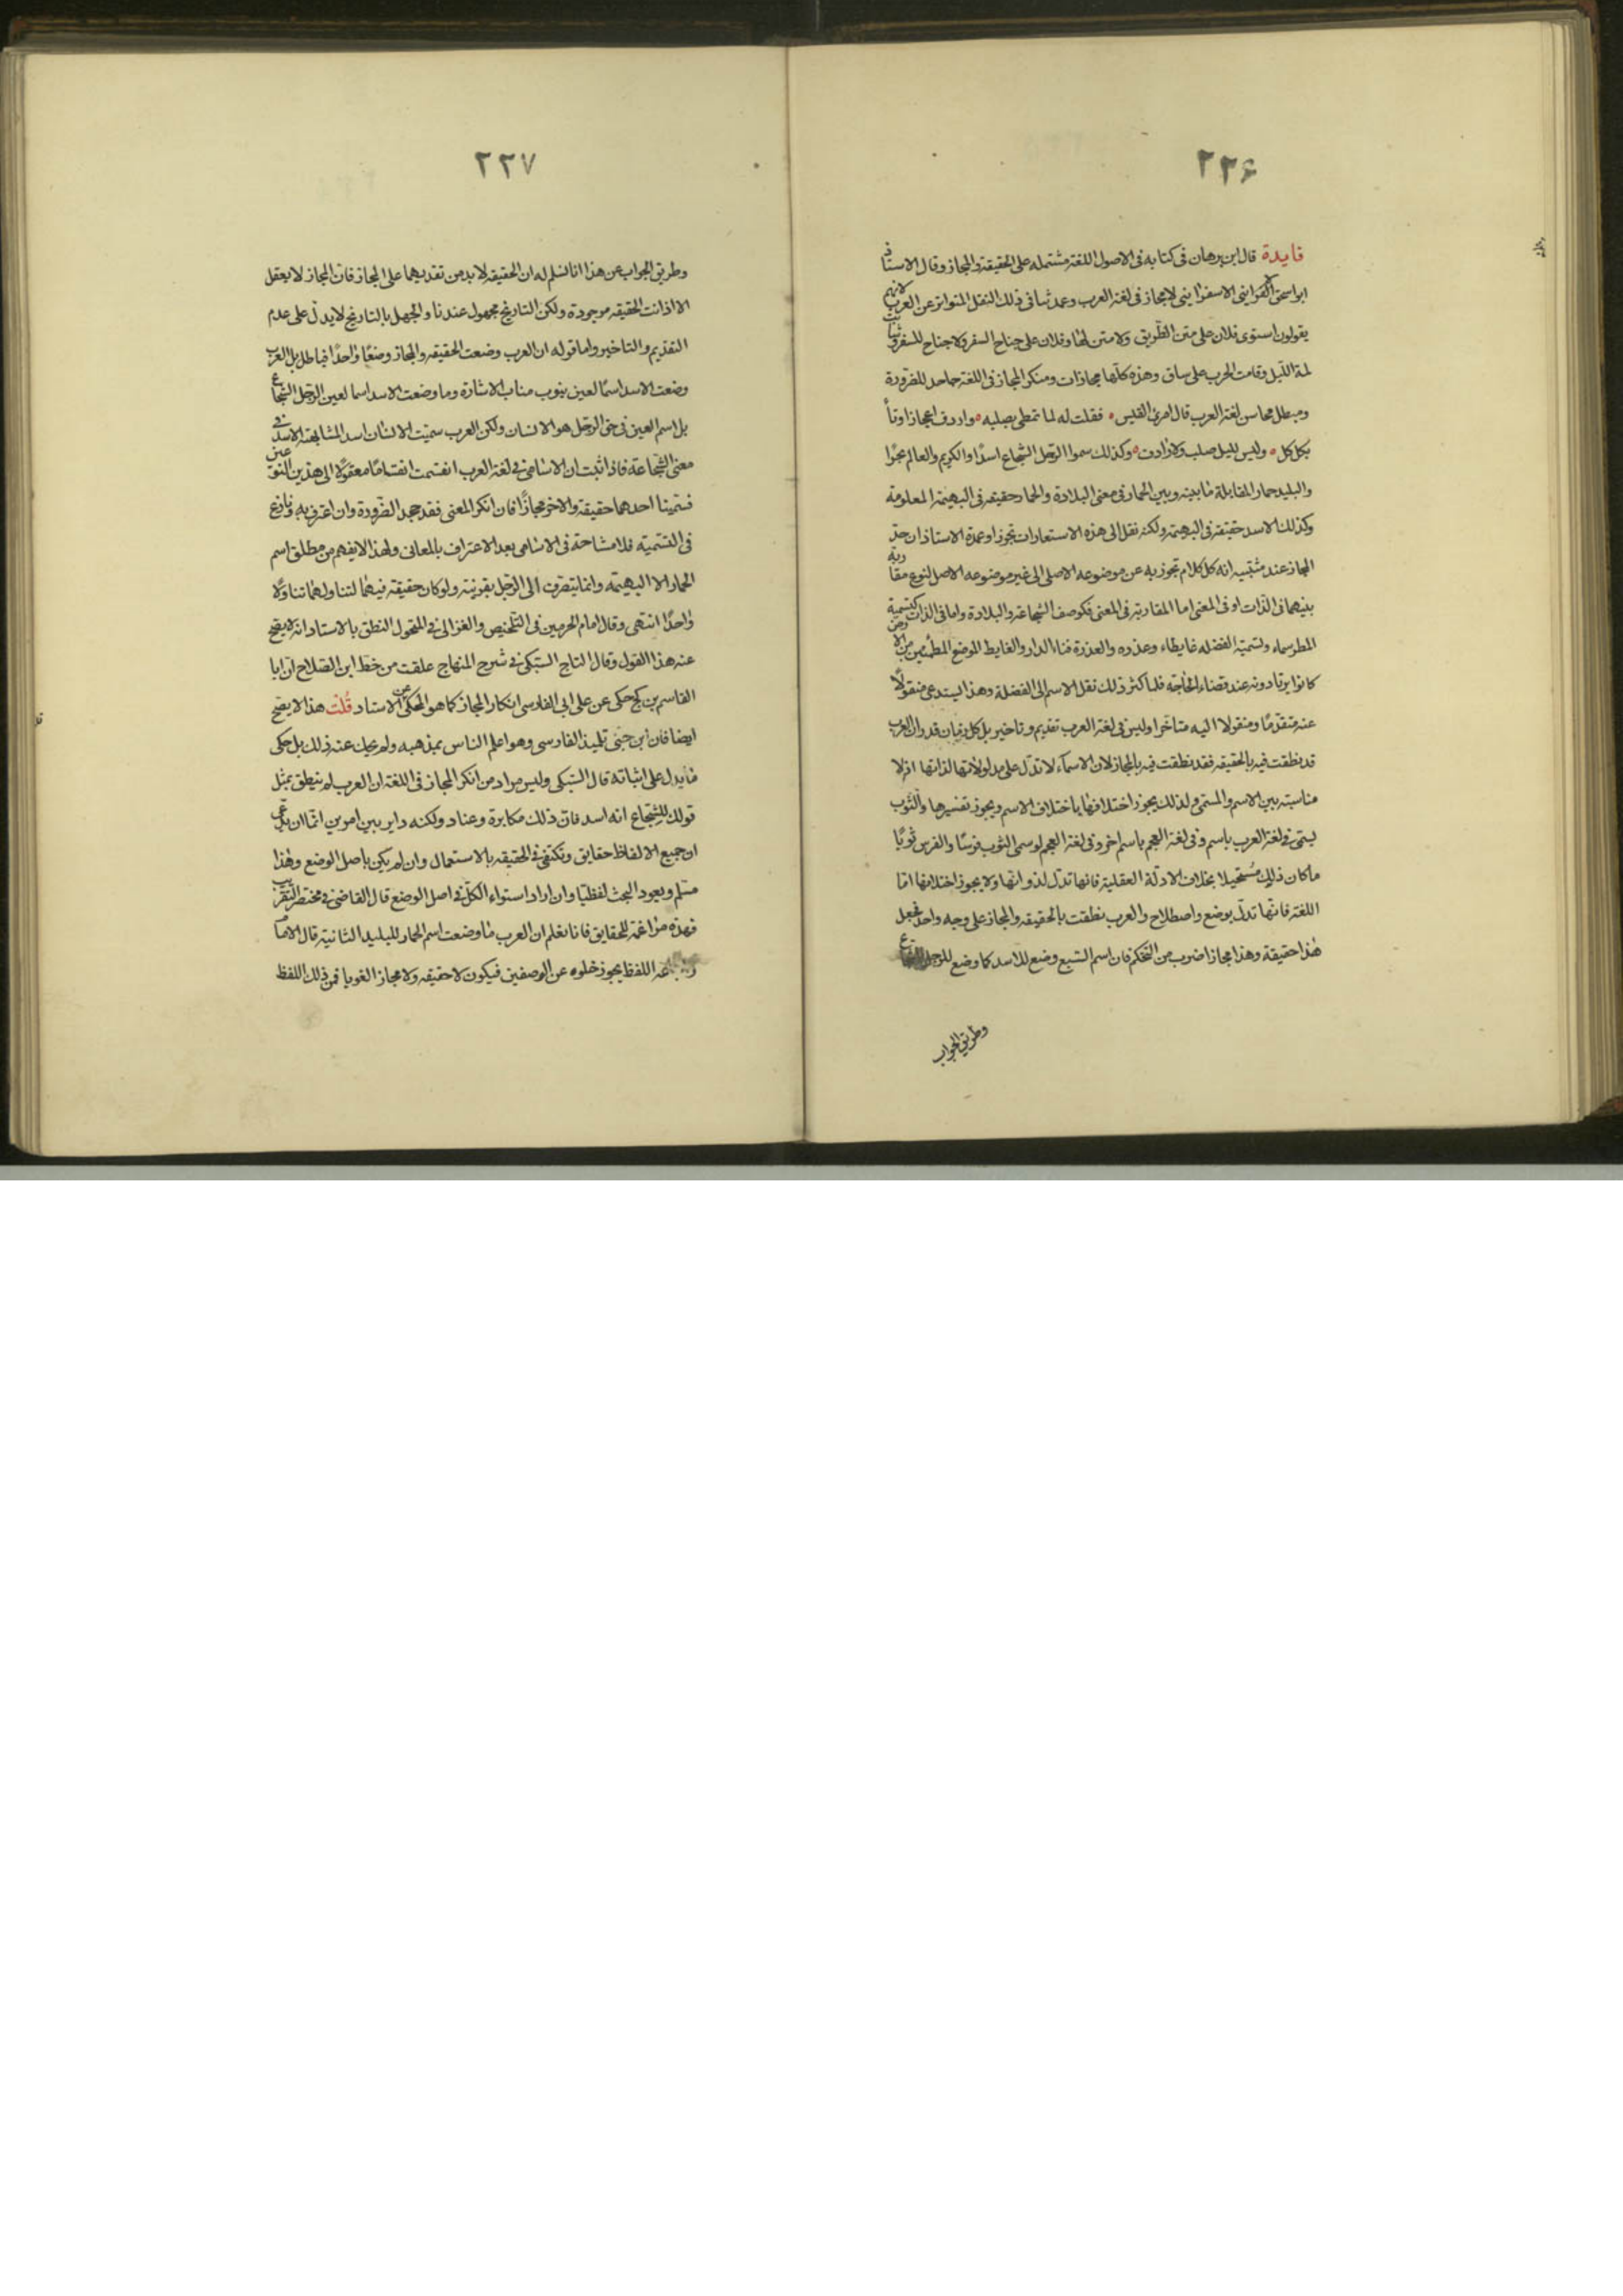 ٢٢۶
فايدة قال ابن برهان فى كتابه فى الاصول اللغة مشتمله على الحقيقة والمجاز وقال الاستاذ
ابو اسحق الاسفراينى لا مجاز فى لغة العرب وعمدتنا فى ذلك النقل المتواتر عن العرب لانهم
يقولون استوى فلان على متن الطريق ولا متن لها وفلان على جناح السفر ولا جناح للسفر وشابت
لمة الليل وقامت الحرب على ساق وهذه كلها مجازات ومنكر المجاز فى اللغة جاحد للضرورة
ومبطل محاسن لغة العرب قال امرئ القيس فقلت له لما تمطى بصلبه واردف اعجازا وناأ
بكلكل وليس لليل صلب ولا ارداف وكذلك سموا الرجل الشجاع اسدًا والكريم والعالم بحرًا
والبليد حمار المقابلة ما بينه وبين الحمار فى معنى البلادة والحمار حقيقه فى البهيمة المعلومة
وكذلك الاسد حقيقة فى البهيمة ولكنه نقل الى هذه الاستعارات تجوزا وعمدة الاستاذ ان حد
المجاز عند مثبتيه انه كل كلام تجوز به عن موضوعه الاصلى الى غير موضوعه الاصل لنوع مقاربة
بينهما فى الذات او فى المعنى اما المقاربة فى المعنى فكوصف الشجاعة والبلادة واما فى الذات كتسمية
المطر سماء وتسمية الفضله غايطاء وعذره والعذرة فناء الدار والغايط الموضع المطمئن من الارض
كانوا يرتادونه عند قضاء الحاجة فلما كثر ذلك نقل الاسم الى الفضلة وهذا يستدعى منقولًا
عنه متقدمًا ومنقولا اليه متاخرا وليس فى لغة العرب تقديم وتاخير بل كل زمان قدر ان العرب
قد نطقت فيه بالحقيقه فقد نطقت فيه بالمجاز لان الاسمآء لا تدل على مدلولاتها لذاتها اذ لا
مناسبة بين الاسم والمسمى ولذلك يجوز اختلافها باختلاف الاسم ويجوز تغييرها والثوب
يسمى فى لغة العرب باسم وفى لغة العجم باسم اخر وفى لغة العجم لو سمى الثوب فرسًا والفرس ثوبًا
ما كان ذلك مُستحيلا بخلاف الادلة العقلية فانها تدل لذواتها ولا يجوز اختلافها اما
اللغة فانها تدل بوضع واصطلاح والعرب نطقت بالحقيقه والمجاز على وجه واحد فجعل
هذا حقيقة وهذا مجازا ضرب من التحكم فان اسم السبع وضع للاسد كما وضع للرجل الشجاع
وطريق الجواب
٢٢٧
وطريق الجواب عن هذا انا نسلم له ان الحقيقه لابد من تقديمها على المجاز فان المجاز لا يعقل
الا اذا كانت الحقيقه موجودة ولكن التاريخ مجهول عندنا والجهل بالتاريخ لا يدل على عدم
التقديم والتاخير واما قوله ان العرب وضعت الحقيقه والمجاز وضعًا واحدًا فباطل بل العرب
وضعت الاسد اسمًا لعين ينوب مناب الاشارة وما وضعت الاسد اسما لعين الرجل الشجاع
بل اسم العين فى حق الرجل هو الانسان ولكن العرب سميت الانسان اسد المشابهة الاسد فى
معنى الشجاعة فاذا ثبت ان الاسامى فى لغة العرب انقسمت انقسامًا معقولًا الى هذين النوعين
فسمينا احدهما حقيقة والاخر مجازًا فان انكر المعنى فقد جحد الضرورة وان اعترف به ونازع
فى التسمية فلا مشاحة فى الاسامى بعد الاعتراف بالمعانى ولهذا لا يفهم من مطلق اسم
الحمار الا البهيمه وانما ينصرف الى الرجل بقرينة ولو كان حقيقة فيهما لتناولهما تناولًا
واحدًا انتهى وقال امام الحرمين فى التلخيص والغزالى فى المنخول الظن بالاستاد انه لا يصح
عنه هذا القول وقال التاج السبكى فى شرح المنهاج علقت من خط ابن الصلاح ان ابا
القاسم بن كج حكى عن على ابى الفارسى انكار المجاز كما هو المحكى عن الاستاد قُلت هذا لا يصح
ايضا فان ابن جنى تلميذ الفارسى وهو اعلم الناس بمذهبه ولم يحك عنه ذلك بل حكى
ما يدل على اثباته قال السبكى وليس مراد من انكر المجاز فى اللغة ان العرب لم ينطق بمثل
قولك للشجاع انه اسد فان ذلك مكابرة وعناد ولكنه داير بين امرين اما ان يدعى
ان جميع الالفاظ حقايق ونكتفى فى الحقيقه بالاستعمال وان لم يكن باصل الوضع وهذا
مسلم ويعود البحث لفظيا وان اراد استواء الكل فى اصل الوضع قال القاضى فى مختصر التقريب
فهذه مراغمة للحقايق فانا نعلم ان العرب ما وضعت اسم الحمار للبليد الثانية قال الامام
اللفظ يجوز خلوه عن الوصفين فيكون لا حقيقه ولا مجازا لغويا فمن ذلك اللفظ